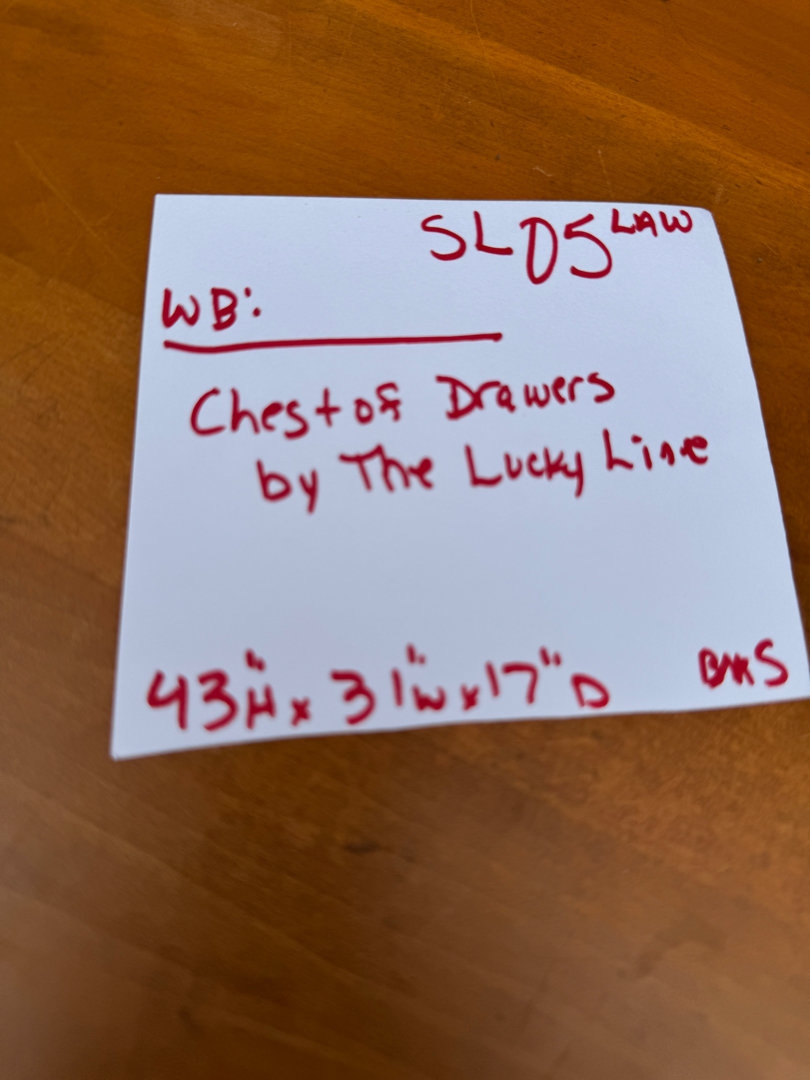 SL05 LAW
WB:
Chest of Drawers
by The Lucky Line
43"H x 31"W x 17"D